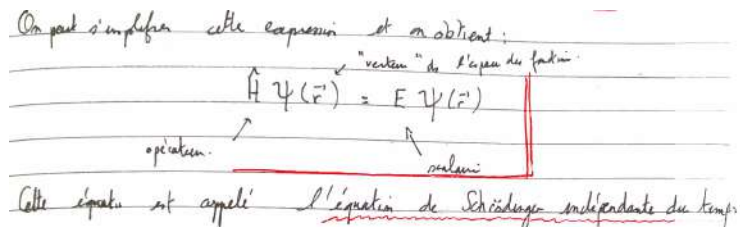 On peut simplifier cette expression et on obtient :
"vecteur" de l'espace des fonctions.
Ĥ Ψ(r⃗) = E Ψ(r⃗)
opérateur. scalaire
Cette équation est appelé l'équation de Schrödinger indépendante du temps